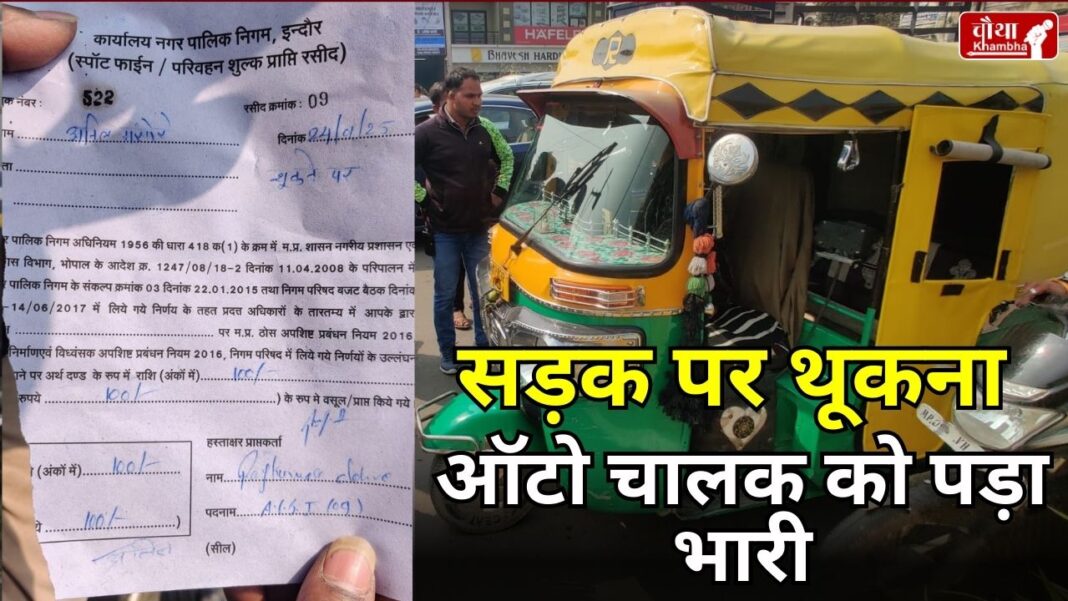 कार्यालय नगर पालिक निगम, इन्दौर
(स्पॉट फाईन / परिवहन शुल्क प्राप्ति रसीद)
क नंबर: 522
रसीद क्रमांक : 09
दिनांक 24/1/25
थुकने पर
र पालिक निगम अधिनियम 1956 की धारा 418 क(1) के क्रम में म.प्र. शासन नगरीय प्रशासन एव
ास विभाग, भोपाल के आदेश क्र. 1247/08/18-2 दिनांक 11.04.2008 के परिपालन में
र पालिक निगम के संकल्प क्रमांक 03 दिनांक 22.01.2015 तथा निगम परिषद बजट बैठक दिनांक
-14/06/2017 में लिये गये निर्णय के तहत प्रदत अधिकारों के तारतम्य में आपके द्वार
पर म.प्र. ठोस अपशिष्ट प्रबंधन नियम 2016
निर्माणएवं विध्वंसक अपशिष्ट प्रबंधन नियम 2016, निगम परिषद में लिये गये निर्णयों के उल्लंघन
ाने पर अर्थ दण्ड के रूप में राशि (अंकों में) 100/-
रुपये 100/- ) के रुप मे वसूल/प्राप्त किये गये
हस्ताक्षर प्राप्तकर्ता
(अंकों में) 100/-
नाम
100/- )
पदनाम
(सील)
चौथा
Khambha
HÄFELE
BHAVESH HARD
सड़क पर थूकना
ऑटो चालक को पड़ा
भारी